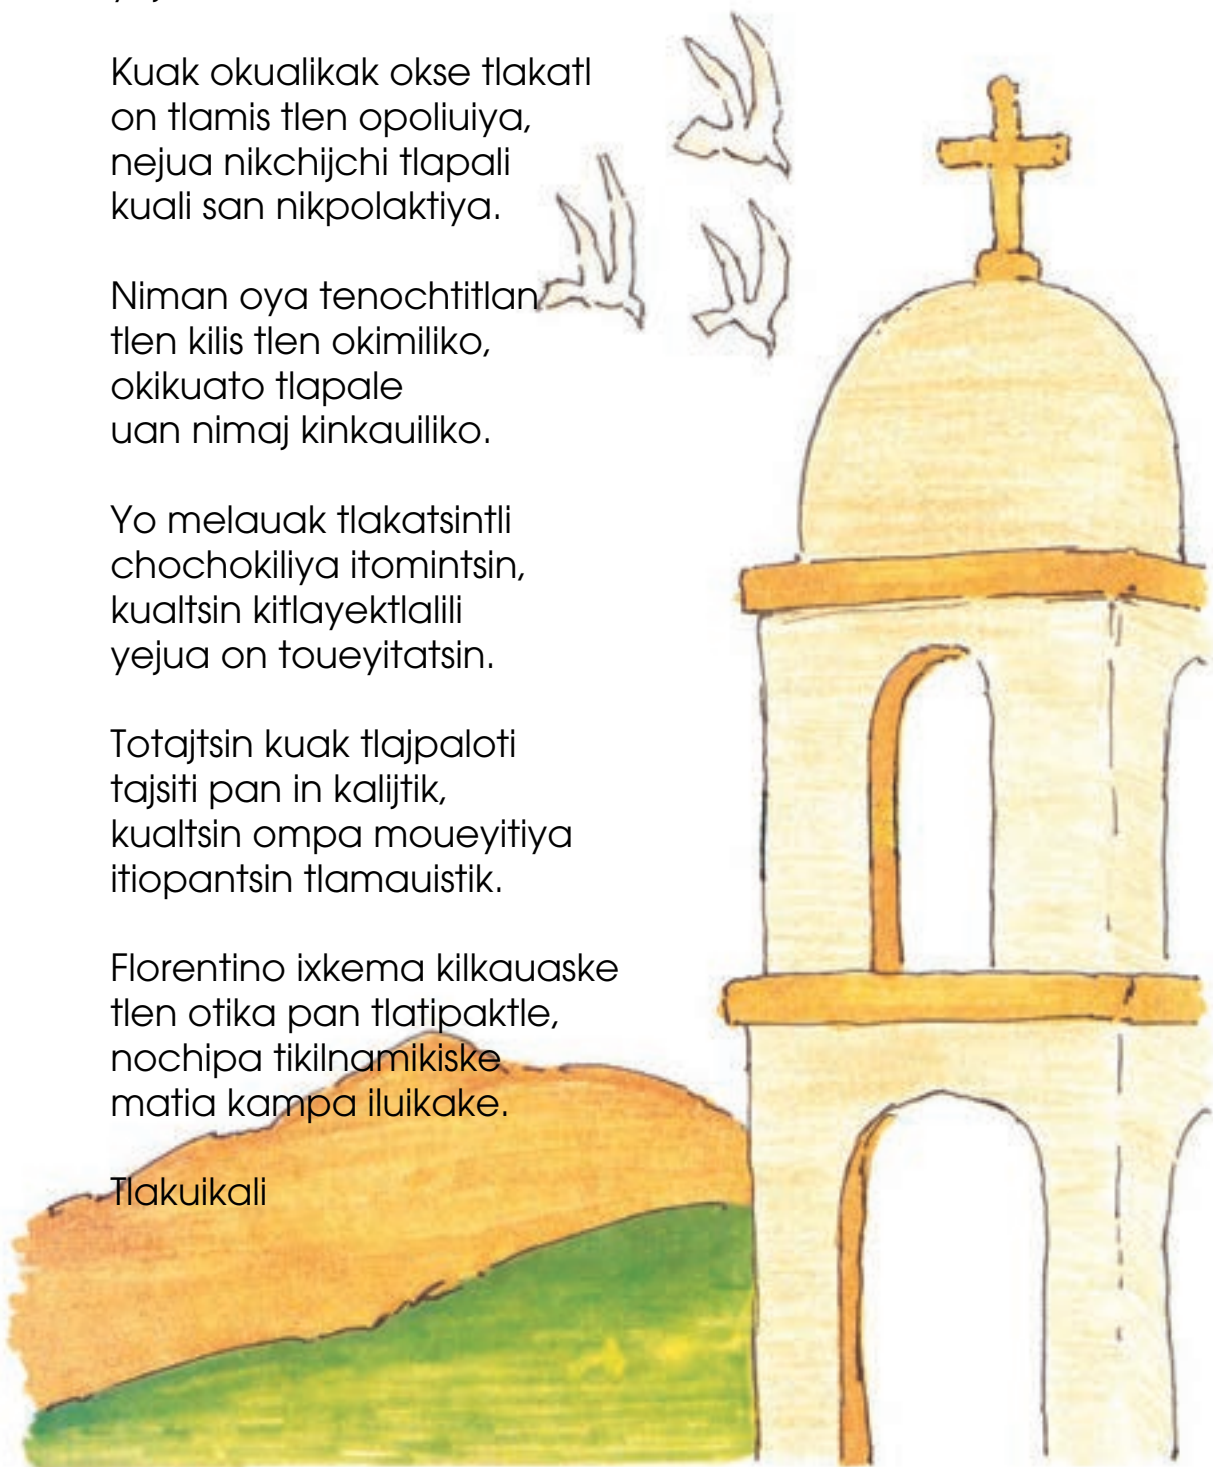 Kuak okualikak okse tlakatl
on tlamis tlen opoliuiya,
nejua nikchijchi tlapali
kuali san nikpolaktiya.

Niman oya tenochtitlan
tlen kilis tlen okimiliko,
okikuato tlapale
uan nimaj kinkauiliko.

Yo melauak tlakatsintli
chochokiliya itomintsin,
kualtsin kitlayektlalili
yejua on toueyitatsin.

Totajtsin kuak tlajpaloti
tajsiti pan in kalijtik,
kualtsin ompa moueyitiya
itiopantsin tlamauistik.

Florentino ixkema kilkauaske
tlen otika pan tlatipaktle,
nochipa tikilnamikiske
matia kampa iluikake.

Tlakuikali